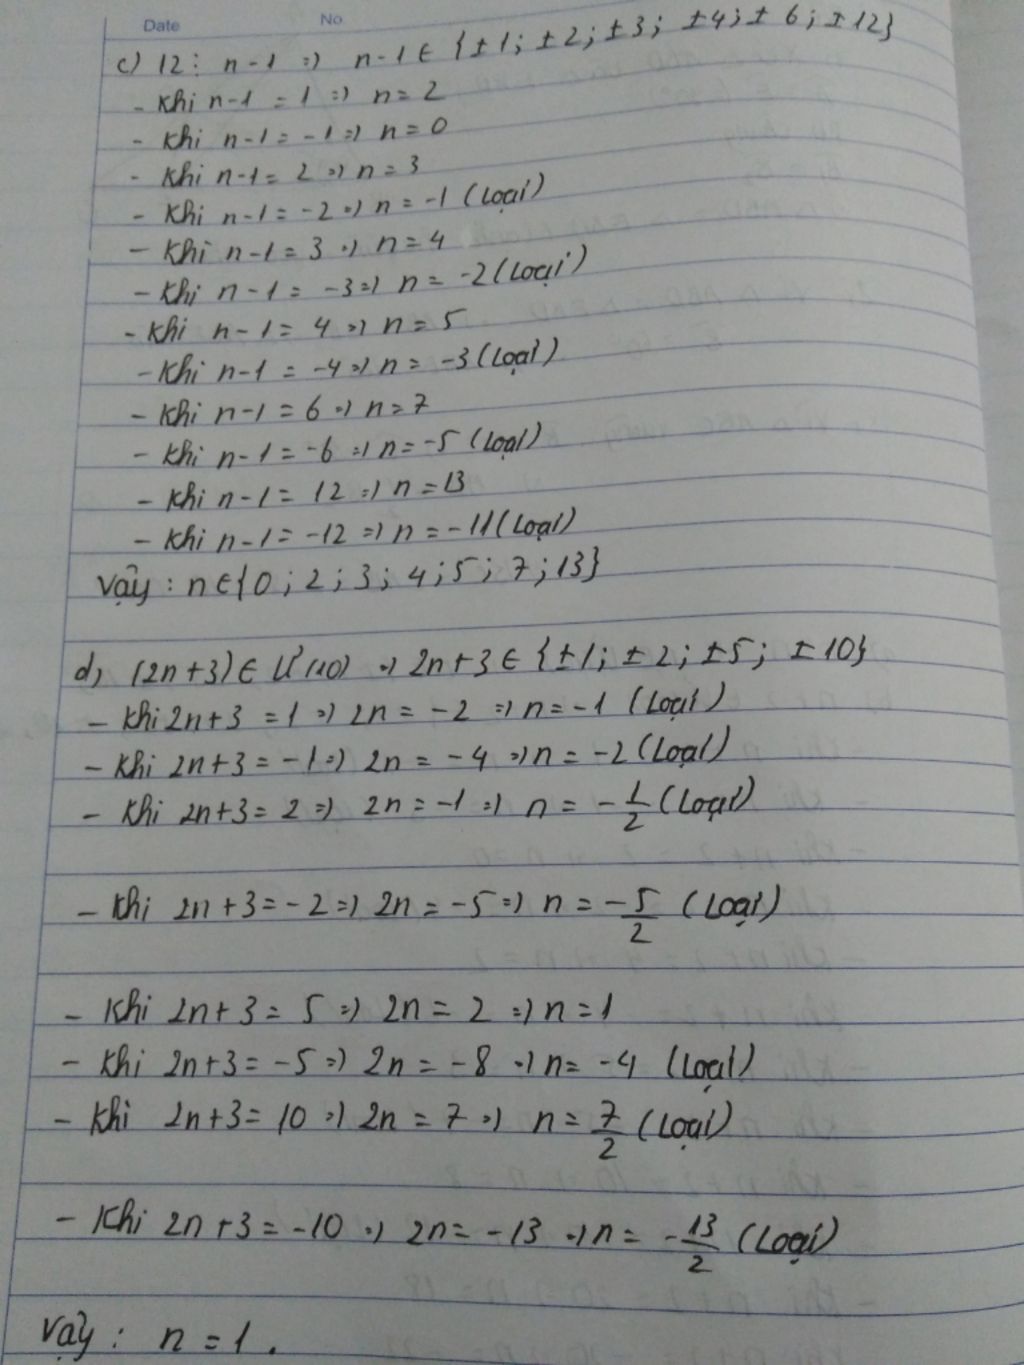 Date No
c) 12 ⋮ n-1 => n-1 ∈ {±1; ±2; ±3; ±4; ±6; ±12}
- Khi n-1 = 1 => n = 2
- Khi n-1 = -1 => n = 0
- Khi n-1 = 2 => n = 3
- Khi n-1 = -2 => n = -1 (Loại)
- Khi n-1 = 3 => n = 4
- Khi n-1 = -3 => n = -2 (Loại)
- Khi n-1 = 4 => n = 5
- Khi n-1 = -4 => n = -3 (Loại)
- Khi n-1 = 6 => n = 7
- Khi n-1 = -6 => n = -5 (Loại)
- Khi n-1 = 12 => n = 13
- Khi n-1 = -12 => n = -11 (Loại)
Vậy : n ∈ {0; 2; 3; 4; 5; 7; 13}
d) (2n+3) ∈ Ư(10) => 2n+3 ∈ {±1; ±2; ±5; ±10}
- Khi 2n+3 = 1 => 2n = -2 => n = -1 (Loại)
- Khi 2n+3 = -1 => 2n = -4 => n = -2 (Loại)
- Khi 2n+3 = 2 => 2n = -1 => n = -1/2 (Loại)
- Khi 2n+3 = -2 => 2n = -5 => n = -5/2 (Loại)
- Khi 2n+3 = 5 => 2n = 2 => n = 1
- Khi 2n+3 = -5 => 2n = -8 => n = -4 (Loại)
- Khi 2n+3 = 10 => 2n = 7 => n = 7/2 (Loại)
- Khi 2n+3 = -10 => 2n = -13 => n = -13/2 (Loại)
Vậy : n = 1.